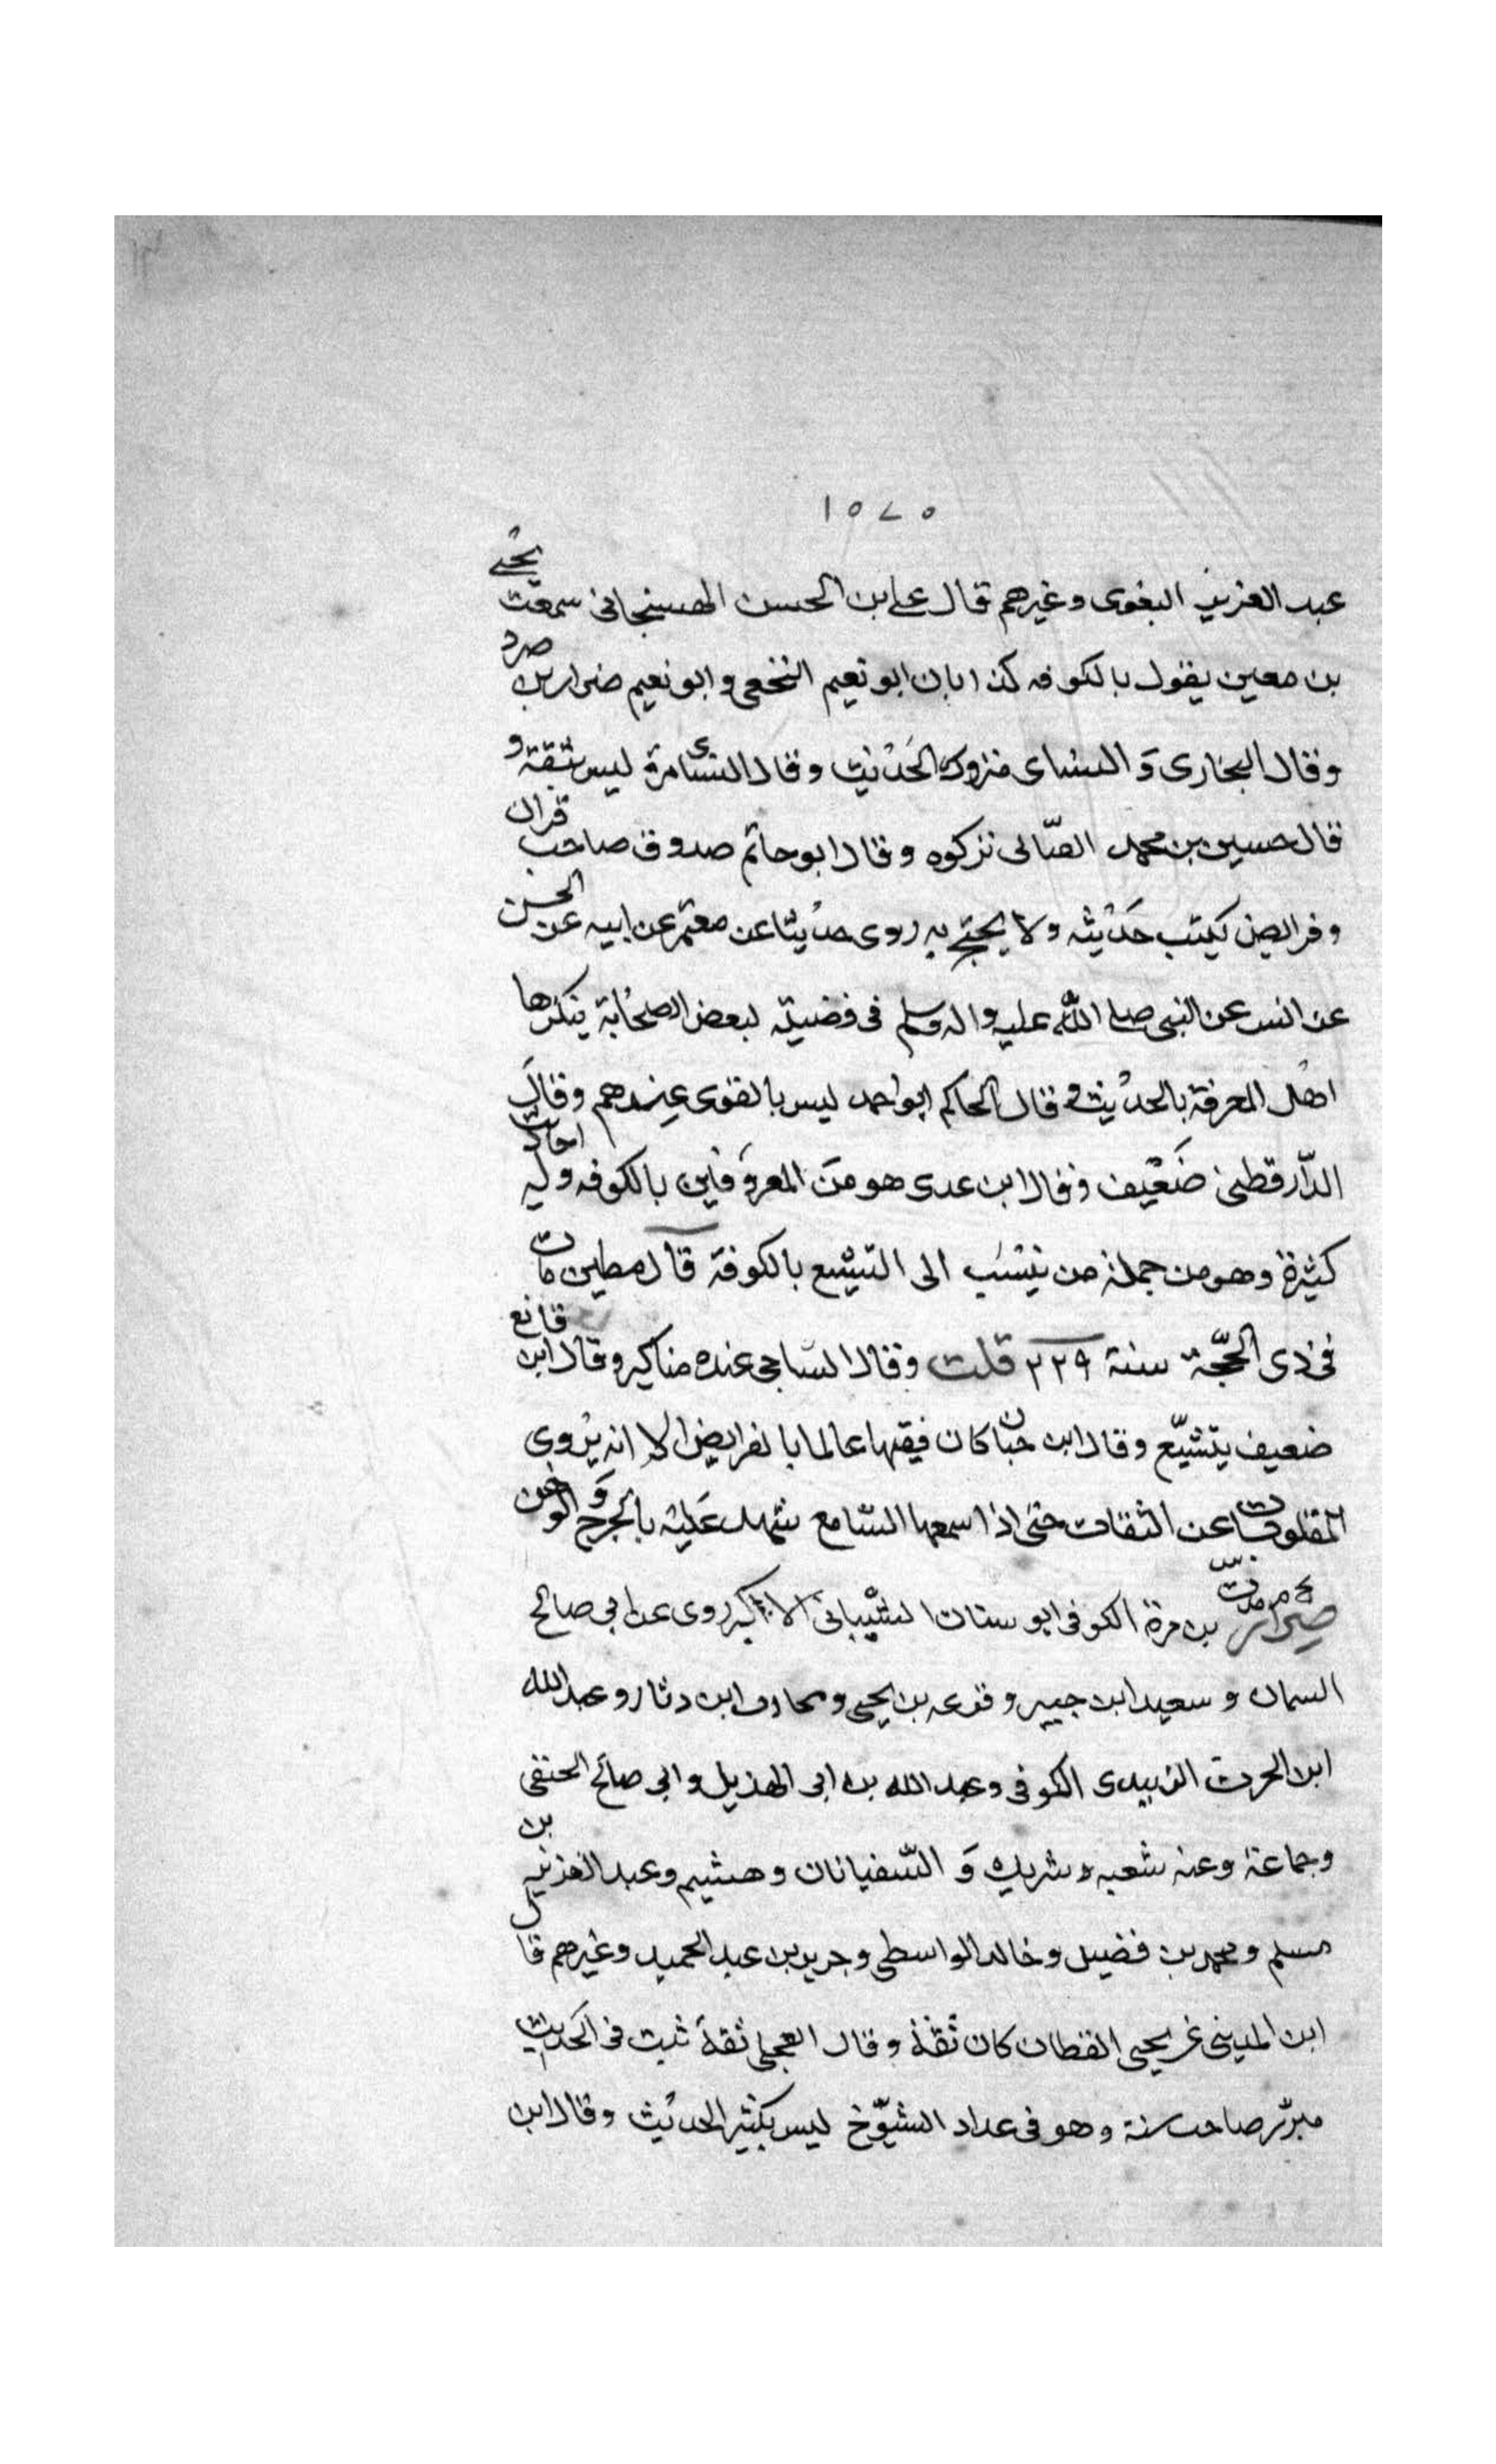 ١٥٧٥
عبد العزيز البغوى وغيرهم قال على بن الحسن الهسنجانى سمعت يحيى
بن معين يقول بالكوفه كذابان ابو نعيم النخعى وابو نعيم ضرار بن صرد
وقال البخارى وَ النساى متروك الحَديث وقال النساى مرة ليس بثقة و
قال حسين بن محمد القبّانى تركوه وقال ابو حاتم صدوق صاحب قران
وفرايض يكتب حَديثه ولا يحتج به روى حديثا عن معتمر عن ابيه عن الحسن
عن انس عن النبى صلى اللّه عليه واله وسلم فى فضيلة لبعض الصحَابة ينكرها
اهل المعرفة بالحديث و قال الحاكم ابو احمد ليس بالقوى عندهم وقالَ
الدّارقطنى ضَعيف وقال ابن عدى هو منَ المعروفين بالكوفه وله احاديث
كثيرة وهو من جملة من ينسَب الى التشيع بالكوفة قال مطين مات
فى ذى الحجّة سنة ٢٢٩ قلت وقال الساجى عنده مناكير وقال ابن قانع
ضعيف يتشيّع وقال ابن حبان كان فيقها عالما بالفرايض الا انه يروى
المقلوبات عن الثقات حتى اذا سمعها السّامع شهد عَليه بالجرح وَ الوهن
بخ م مد ت س
ضرار بن مرة الكوفى ابو سنان الشيبانى الاكبر روى عن ابى صالح
السمان و سعيد ابن جبير و قزعه بن يحيى و محارب ابن دثار و عبد الله
ابن الحرث الزبيدى الكوفى وعبد الله بن ابى الهذيل و ابى صالح الحنفى
وجماعة وعنه شعبه و شريك وَ السّفيانان وهشيم وعبد العزيز بن
مسلم و محمد بن فضيل و خالد الواسطى و جرير بن عبد الحميد وغيرهم قال
ابن المدينى عن يحيى القطان كان ثقة وقال العجلى ثقة ثبت فى الحَديث
مبرّز صاحب سنة وهو فى عداد الشيوخ ليس بكثير الحديث وقال ابن